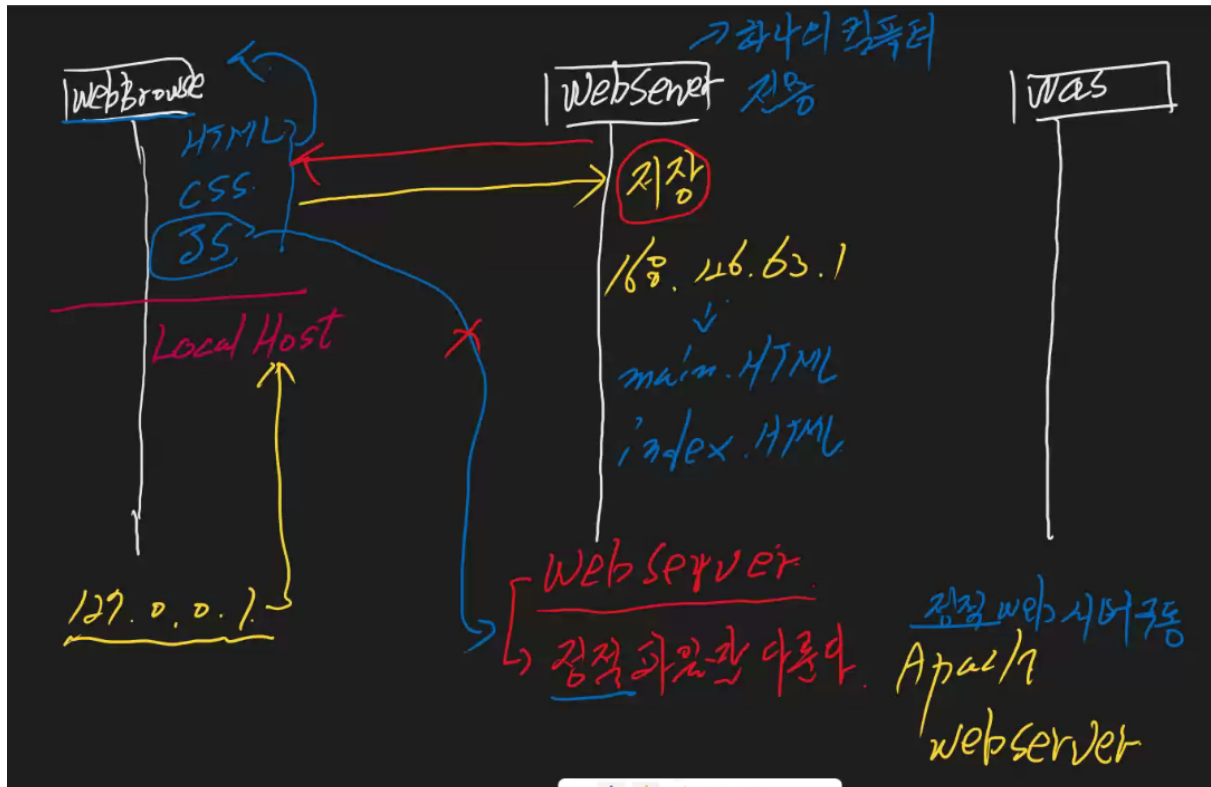 WebBrowse
HTML
CSS.
JS
Local Host
127.0.0.1
WebServer
하나의 컴퓨터
전용
저장
168.126.63.1
main.HTML
index.HTML
Web Server
정적 파일만 다룬다.
Was
정적 web 서버 구동
Apach
webserver